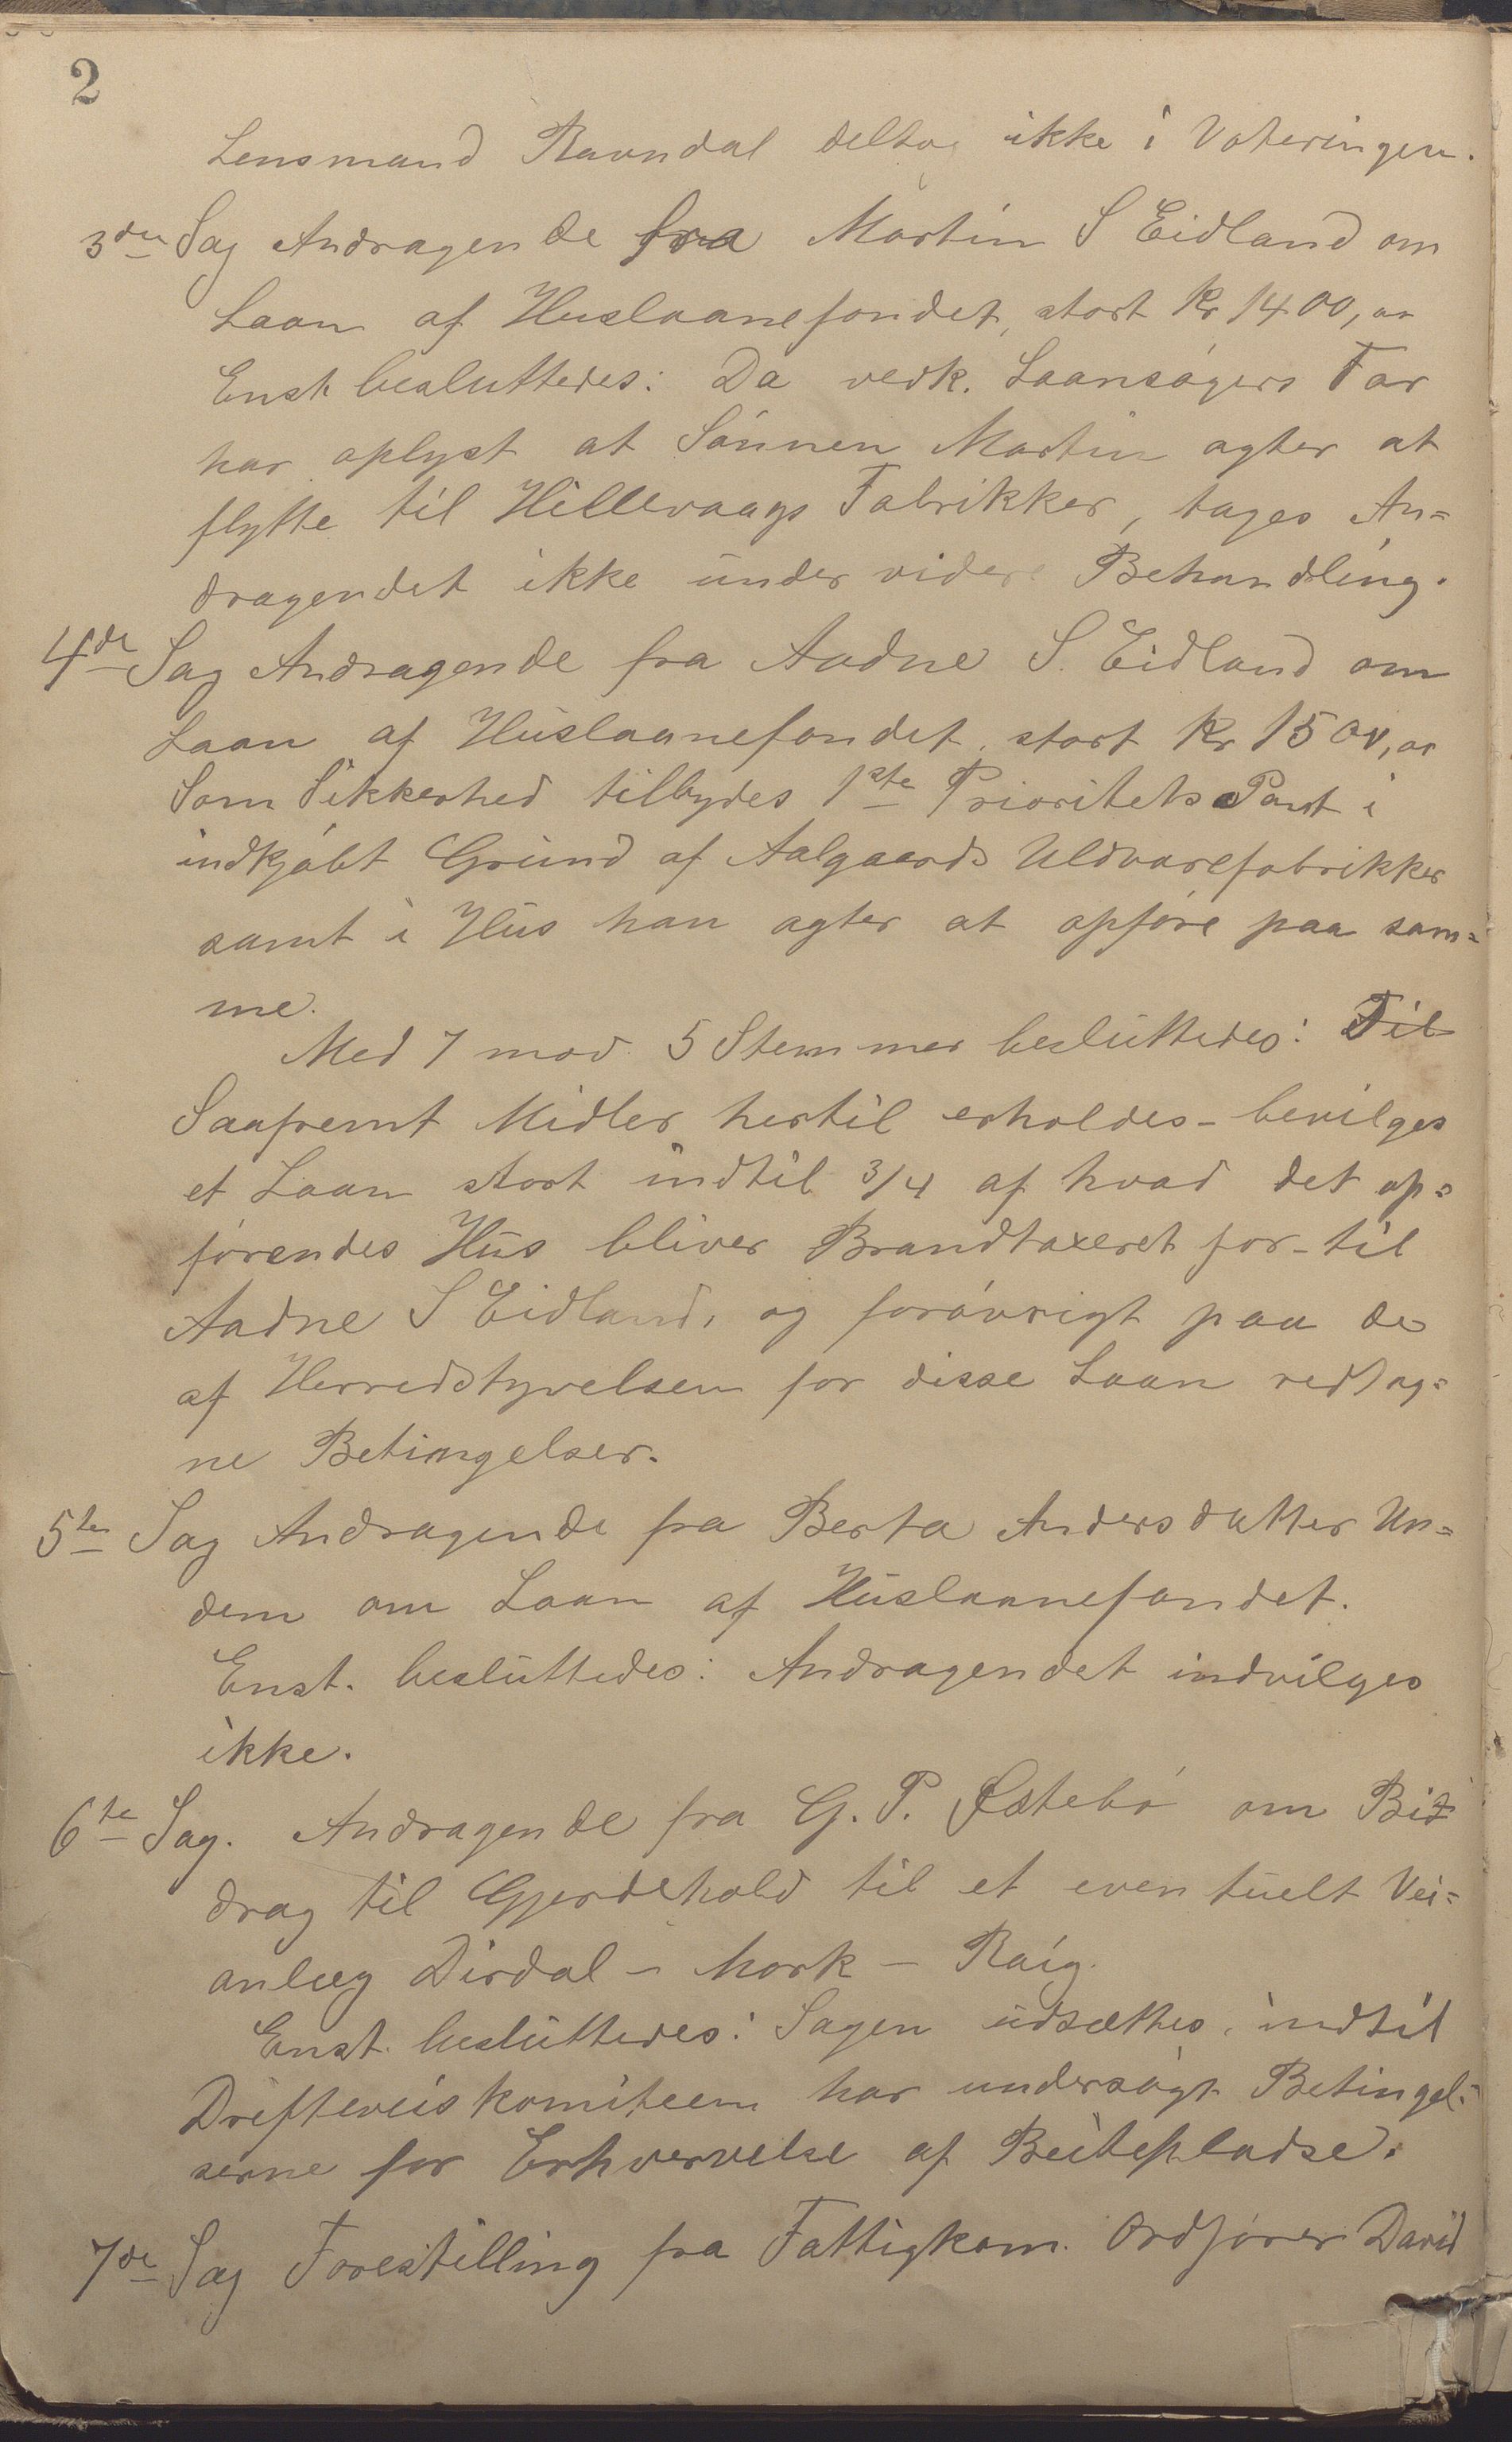 2
Lensmand Ravndal deltog ikke i Voteringen.
3die Sag Andragende fra Martin S Eidland om
Laan af Huslaanefondet, stort Kr 1400,00
Enst besluttedes: Da vedk. Laansøgers Far
har oplyst at Sønnen Martin agter at
flytte til Hillevaags Fabrikker, tages An=
dragendet ikke under videre Behandling.
4de Sag Andragende fra Aadne S. Eidland om
Laan af Huslaanefondet, stort Kr 1500,00
Som Sikkerhed tilbydes 1ste Prioritets Pant i
indkjøbt Grund af Aalgaards Uldvarefabrikker
samt i Hus han agter at opføre paa sam=
me.
Med 7 mod 5 Stemmer besluttedes: Til
Saafremt Midler hertil erholdes - bevilges
et Laan stort indtil 3/4 af hvad det op=
førendes Hus bliver Brandtaxeret for - til
Aadne S Eidland, og forøvrigt paa de
af Herredstyrelsen for disse Laan vedtag=
ne Betingelser.
5te Sag Andragende fra Berta Andersdatter Un=
dem om Laan af Huslaanefondet.
Enst. besluttedes: Andragendet indvilges
ikke.
6te Sag. Andragende fra G. P. Østebø om Bi=
drag til Gjerdehold til et eventuelt Vei=
anlæg Dirdal - Mork - Raig.
Enst. besluttedes: Sagen udsættes, indtil
Drifteveiskomiteen har undersøgt Betingel=
serne for Erhvervelse af Beitepladse.
7de Sag Forestilling fra Fattigkom. Ordfører David